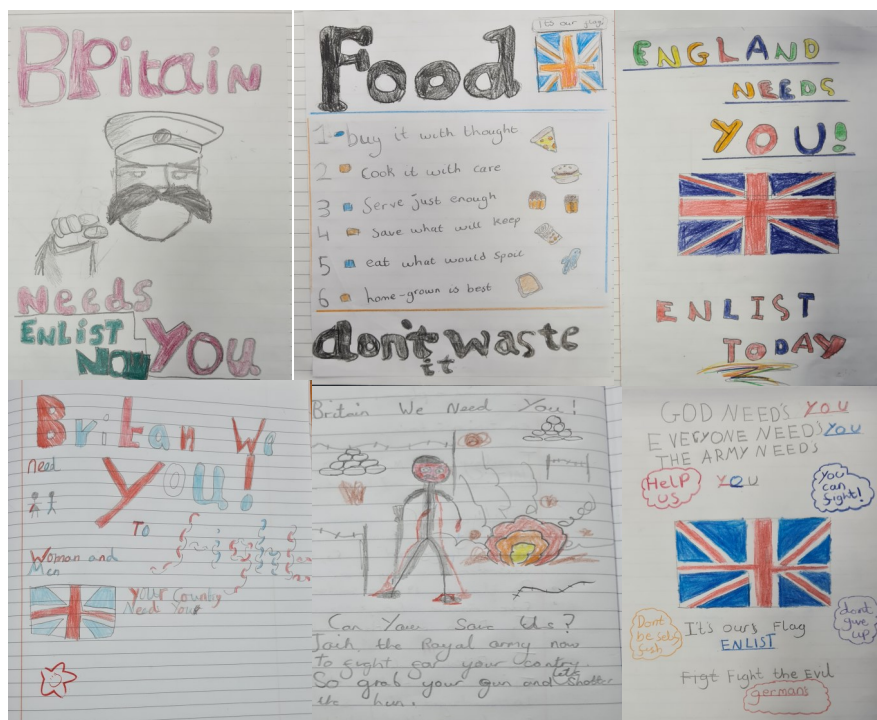 BRitain
Needs
ENLIST
NOW
YOU
Food
It's our flag
1 buy it with thought
2 Cook it with care
3 Serve just enough
4 save what will keep
5 eat what would spoil
6 home-grown is best
don't waste
it
ENGLAND
NEEDS
YOU!
ENLIST
TODAY
Britan We
need
You!
To
Woman and
Men
your Country
Need Your
Britain We Need You!
Can You Save Us?
Join the Royal army now
to fight for your contry.
So grab your gun and let's shatter
the hun.
GOD NEED'S YOU
EVERYONE NEED'S YOU
THE ARMY NEEDS
YOU
HELP
US
You
can
fight!
Dont
be self
fish
It's ours flag
ENLIST
dont
give
up
Figt Fight the Evil
germans